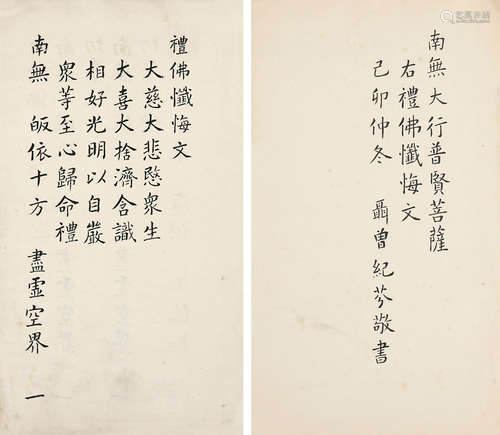 禮佛懺悔文
大慈大悲愍衆生
大喜大捨濟含識
相好光明以自嚴
衆等至心歸命禮
南無 皈依十方 盡虛空界
一
南無大行普賢菩薩
右禮佛懺悔文
己卯仲冬 聶曾紀芬敬書